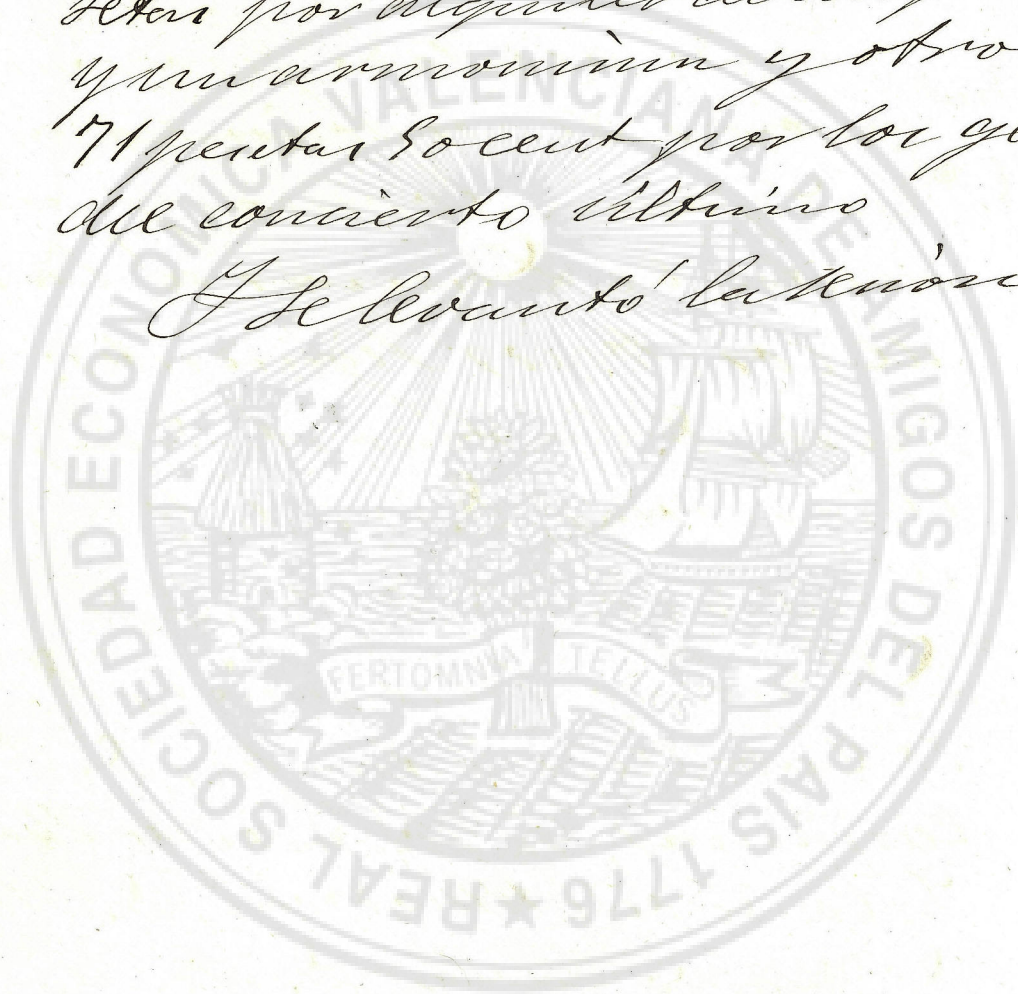 setas por alquiler de
y un armonium y otro
71 pesetas 50 cent por los ga
del concierto último
Y se levantó la sesión
REAL SOCIEDAD ECONOMICA VALENCIANA DE AMIGOS DEL PAIS 1776 ★
FERTOMNIA TELLUS